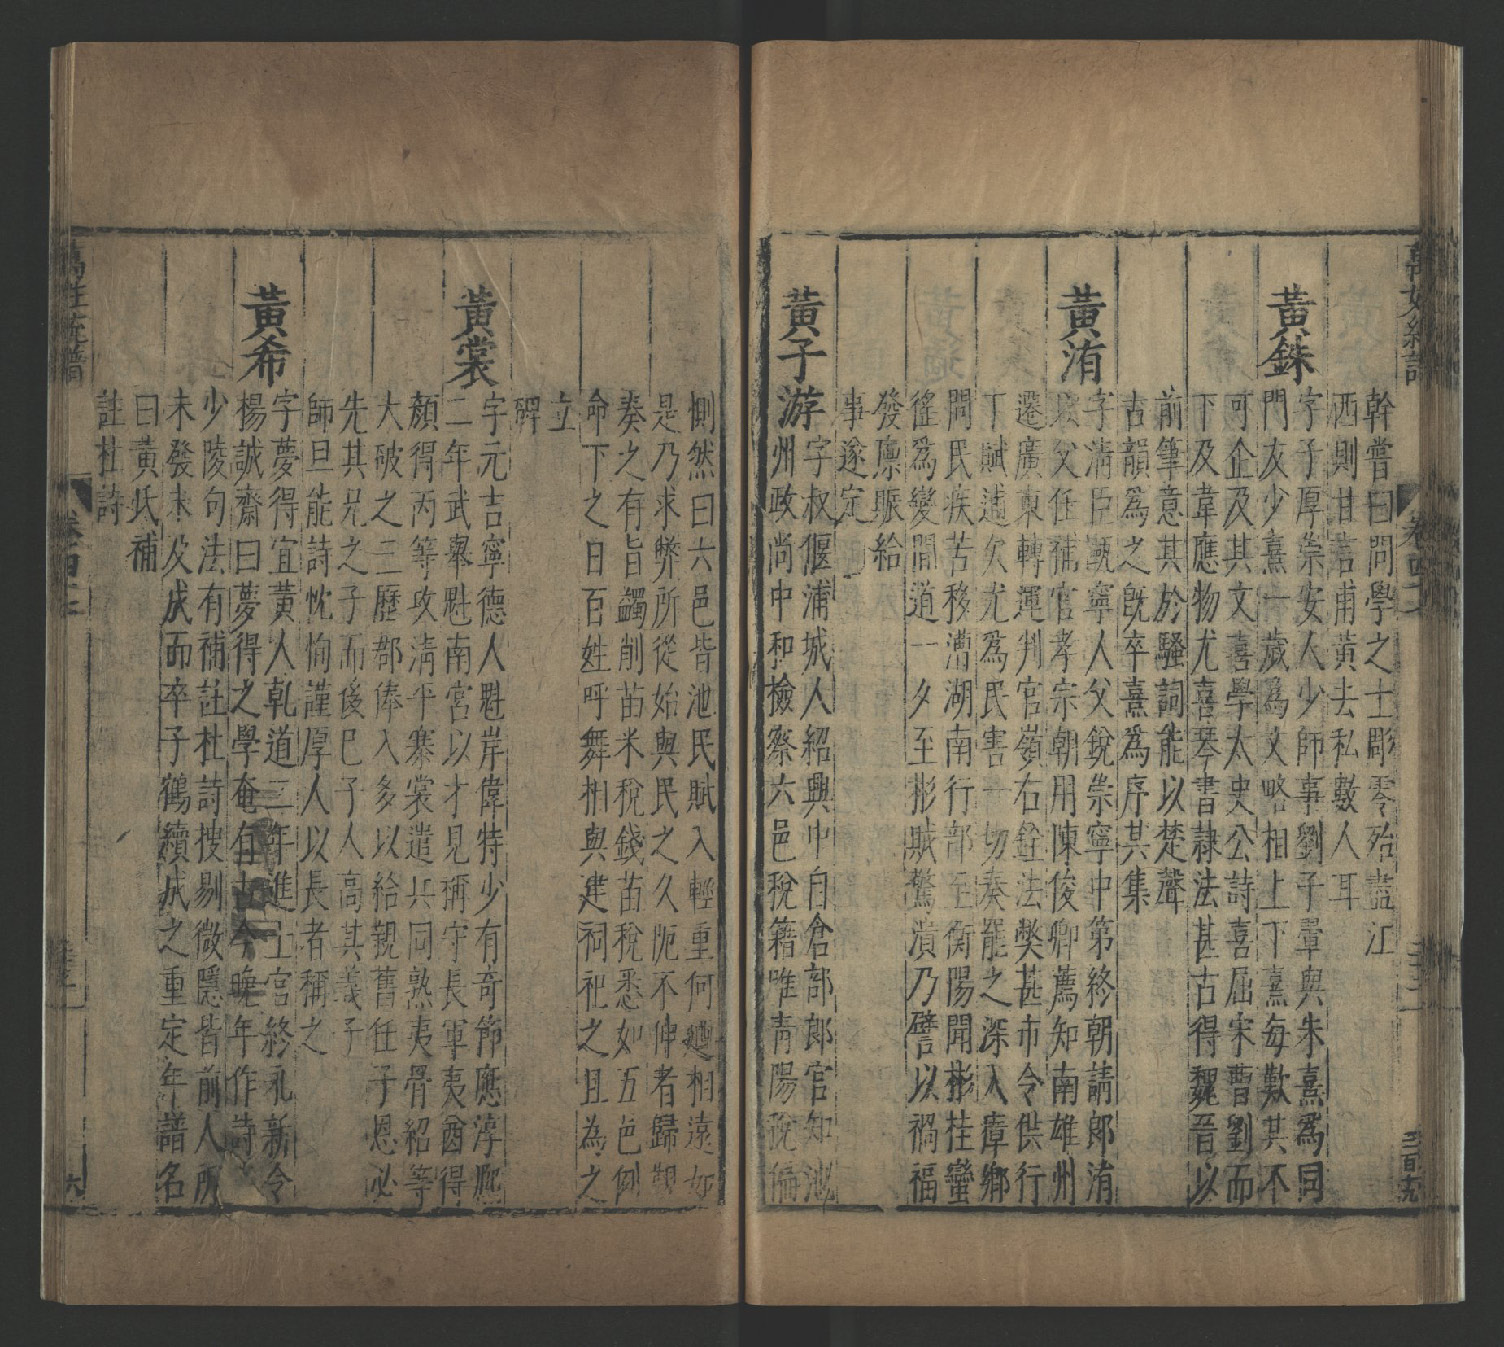 幹嘗曰問學之士彫零殆盡江
西則甘吉甫黃去私數人耳
黃銖
字子厚崇安人少師事劉子翬與朱熹為同
門友少熹一歲爲文略相上下熹每歎其不
可企及其文喜學太史公詩喜屈宋曹劉而
下及韋應物尤喜琴書隷法甚古得魏晉以
前筆意其於騷詞能以楚聲
古韻爲之旣卒熹爲序其集
黃洧
字清臣甌寧人父銳崇寧中第終朝請郎洧
以父任補官孝宗朝用陳俊卿薦知南雄州
遷廣東轉運判官嶺右銓法獘甚市令供行
丁賦逋欠尤爲民害一切奏罷之深入瘴鄉
問民疾苦移漕湖南行部至衡陽聞彬桂蠻
徭爲變間道一夕至彬賊驚潰乃譬以禍福
發廩賑給
事遂定
黃子游
字叔偃浦城人紹興中自倉部郎官知池
州政尚中和檢察六邑稅籍唯青陽稅偏
惻然曰六邑皆池民賦入輕重何廼相遠如
是乃求弊所從始與民之久阨不伸者歸
奏之有旨蠲削苗米稅錢苗稅悉如五邑例
命下之日百姓呼舞相與建祠祀之且為之
立
碑
黃裳
字元吉寧德人魁岸偉特少有奇節應淳熈
二年武舉魁南宮以才見稱守長軍夷酋得
顏得丙等攻清平寨裳遣兵同熟夷骨紹等
大破之三歷郡俸入多以給親舊任子恩必
先其兄之子而後已子人高其義子
師旦能詩忱恂謹厚人以長者稱之
黃希
字夢得宜黃人乾道三年進士官終永新令
楊誠齋曰夢得之學奄有古今晚年作詩
少陵句法有補註杜詩捜剔微隱皆前人所
未發未及成而卒子鶴續成之重定年譜名
曰黃氏補
註杜詩
萬姓統譜
卷四十七
六